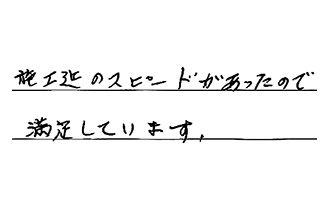 施工迄のスピードがあったので
満足しています。